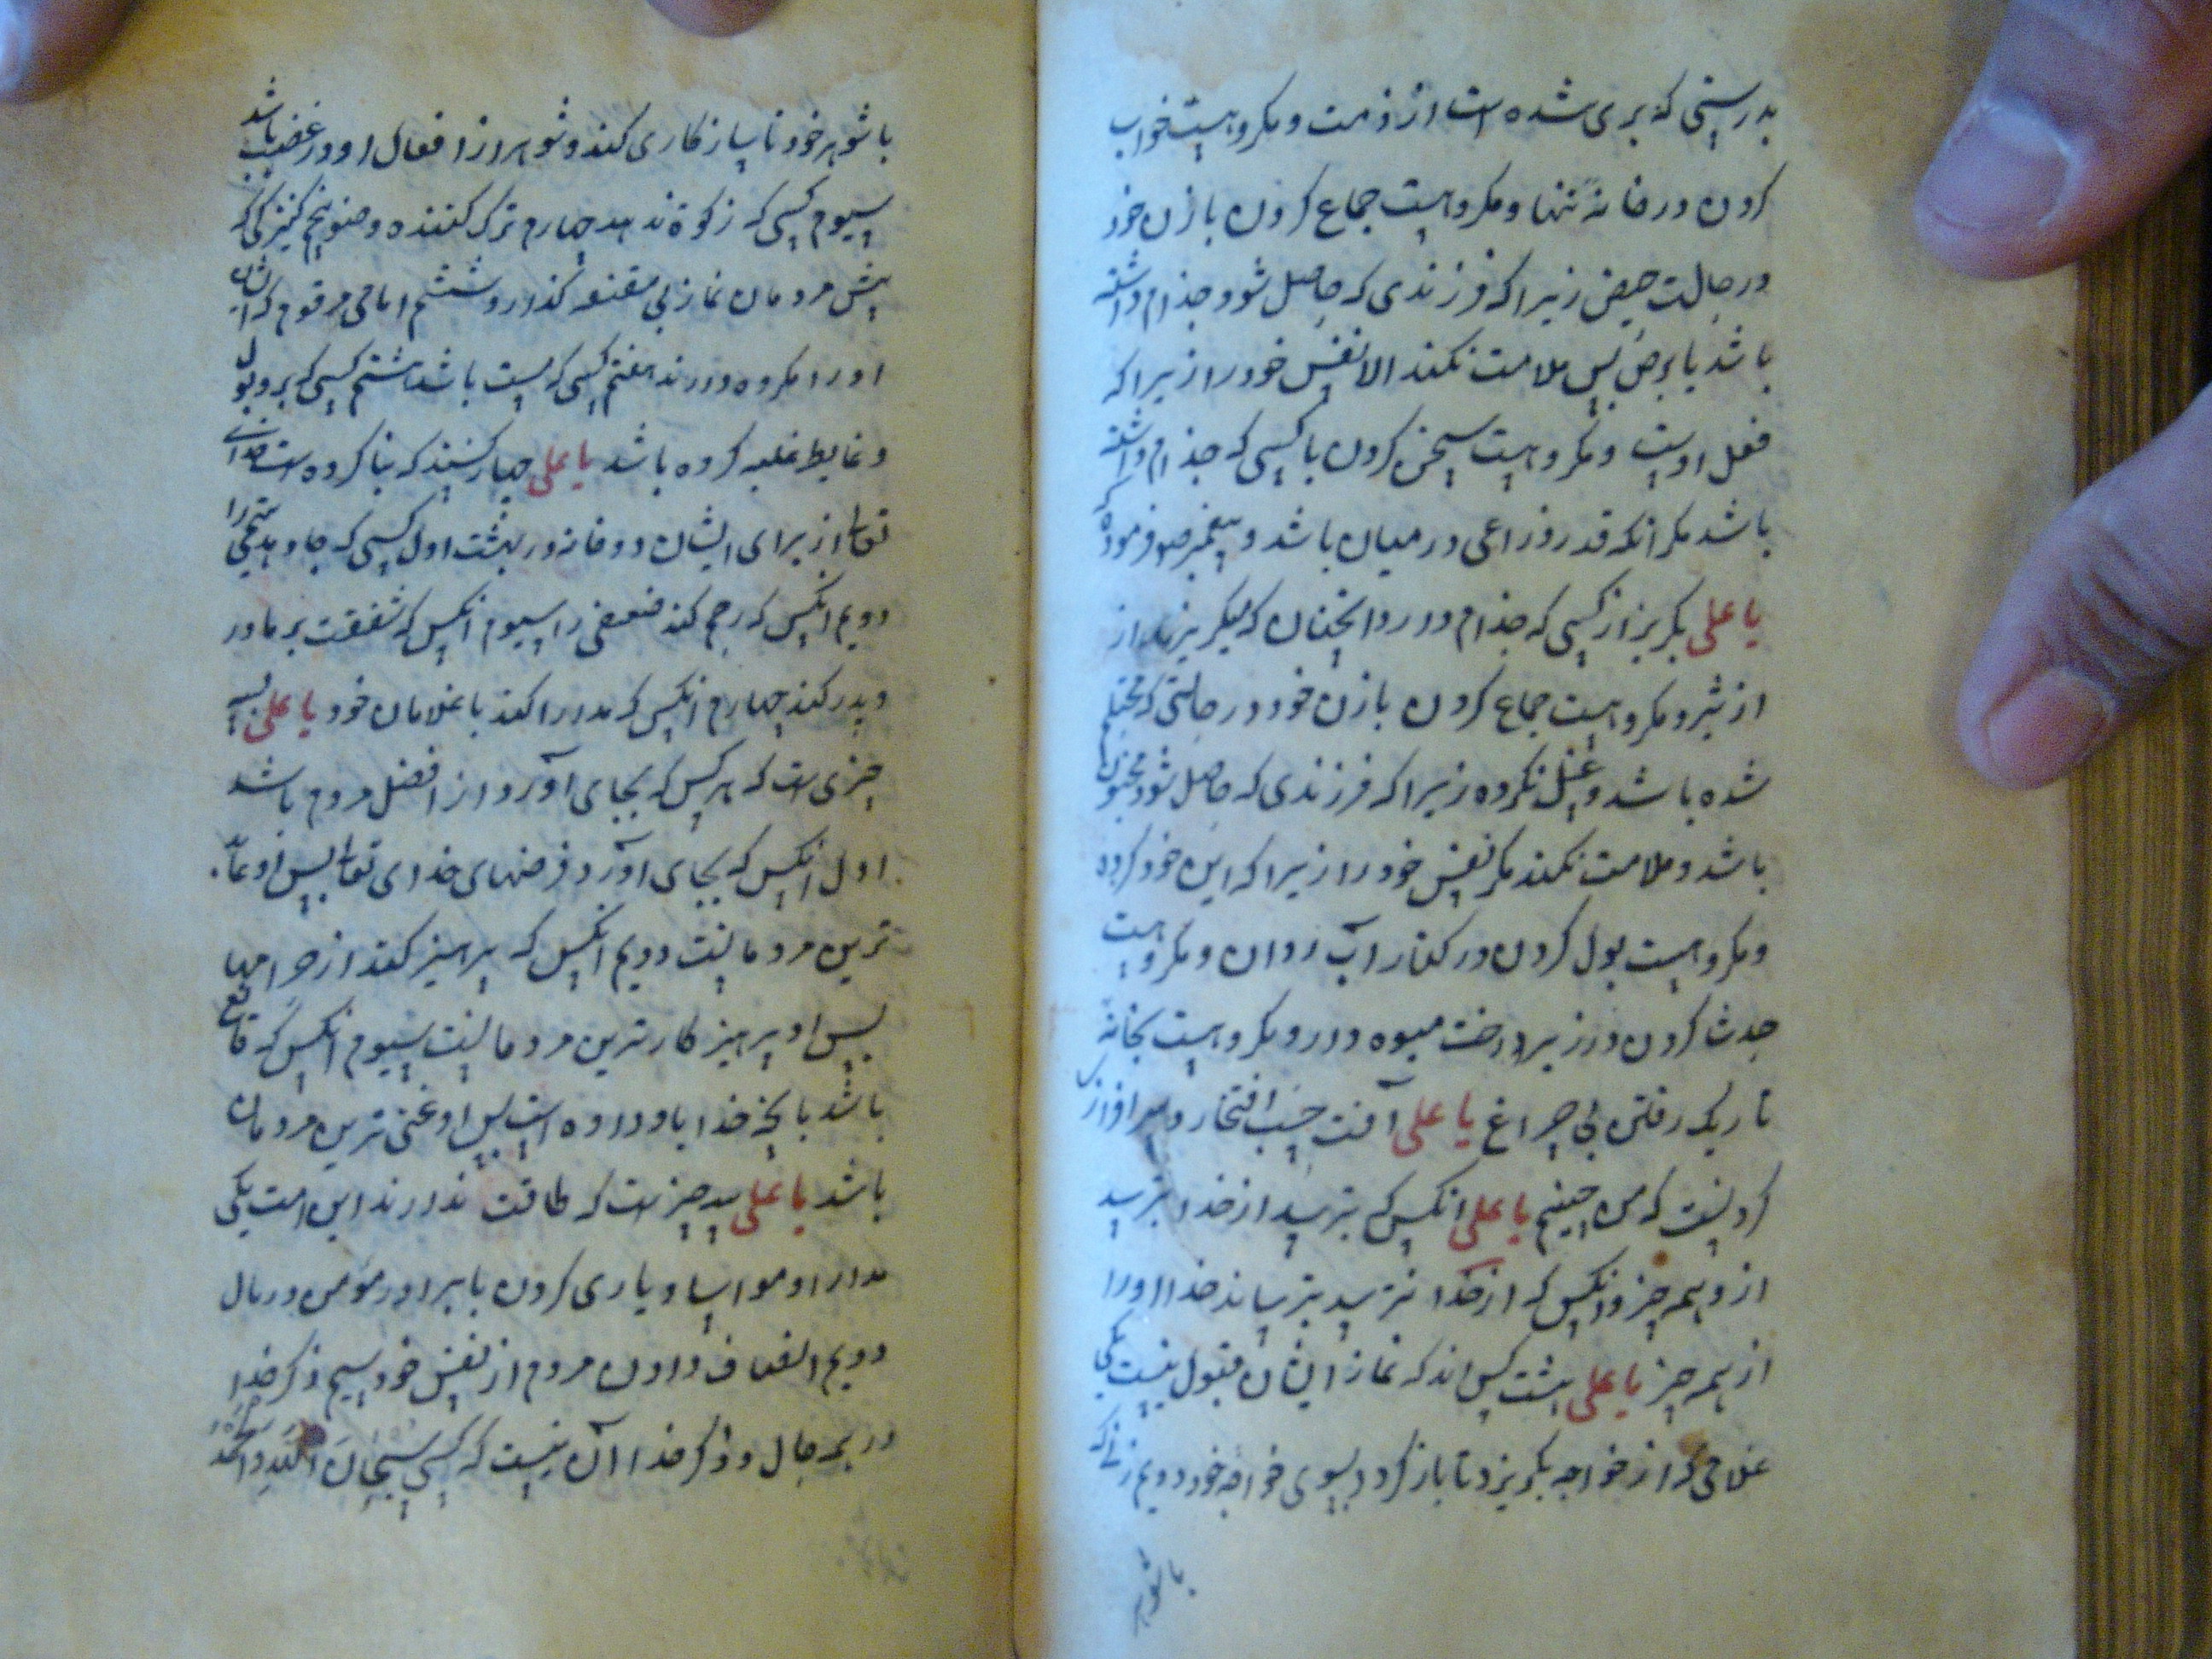 بدرستی که بری شده است از ذمت و مکروهست خواب
کردن در خانه تنها و مکروهست جماع کردن با زن خود
در حالت حیض زیرا که فرزندی که حاصل شود جذام داشته
باشد یا برص پس ملامت نکند الا نفس خود را زیرا که
فعل اوست و مکروهست سخن کردن با کسی که جذام داشته
باشد مکر انکه قدر ذراعی در میان باشد و پیغمبر ص فرموده که
یا علی بکریز از کسی که جذام دارد انچنان که میکریزند از
از شیر و مکروهست جماع کردن با زن خود در حالتی که محتلم
شده باشد و غسل نکرده زیرا که فرزندی که حاصل شود مجنون
باشد و ملامت نکند مکر نفس خود را زیرا که این خود کرده
و مکروهست بول کردن در کنار آب روان و مکروهست
حدث کردن در زیر درخت میوه دار و مکروهست بخانه
تاریک رفتن بی چراغ یا علی آفت حسب افتخار و سرافرازی
کردنست که من چنینم یا علی انکس که بترسد از خدا بترسد
از و همه چیز و انکس که از خدا نترسد بترساند خدا او را
از همه چیز یا علی هشت کس اند که نماز ایشان قبول نیست یکی
غلامی که از خواجه بکریزد تا باز کردد بسوی خواجه خود دویم زنی که
با شوهر
با شوهر خود ناسازکاری کند و شوهر از افعال او در غضب باشد
سیوم کسی که زکوة ندهد چهارم ترک کننده وضو پنجم کنیزکی که
پیش مردمان نماز بی مقنعه کذارد و ششم امامی مر قوم که ایشان
او را مکروه دارند هفتم کسی که مست باشد هشتم کسی که بر و بول
و غایط غلبه کرده باشد یا علی چهار کسند که بنا کرده است خدای
تعالی از برای ایشان دو خانه در بهشت اول کسی که جا دهد یتیمی را
دویم انکس که رحم کند ضعیفی را سیوم انکس که شفقت بر مادر
و پدر کند چهارم انکس که مدارا کند با غلامان خود یا علی سه
چیزی است که هر کس که بجای آورد از افضل مردم باشد
اول انکس که بجای آورد فرضهای خدای تعالی پس او عابد
ترین مردمانست دویم انکس که پرهیز کند از حرامها
پس او پرهیزکارترین مردمانست سیوم انکس که قانع
باشد بانچه خدا باو داده است پس او غنی ترین مردمان
باشد یا علی سه چیز است که طاقت ندارند این امت یکی
مدارا و مواسا و یاری کردن با برادر مؤمن در مال
دویم انصاف دادن مردم از نفس خود سیم ذکر خدا
در هر حال و ذکر خدا آن نیست که کسی سبحان الله و الحمد لله